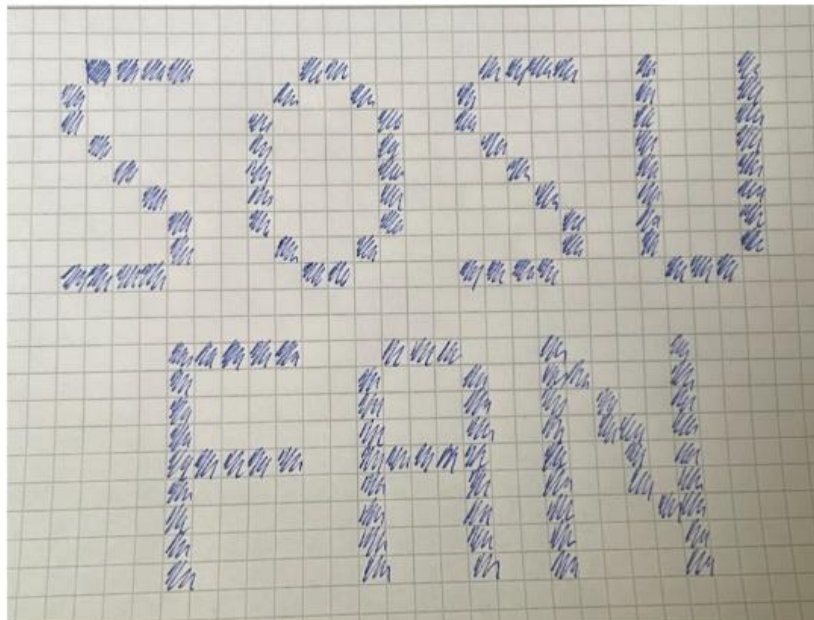 SOSU
FAN